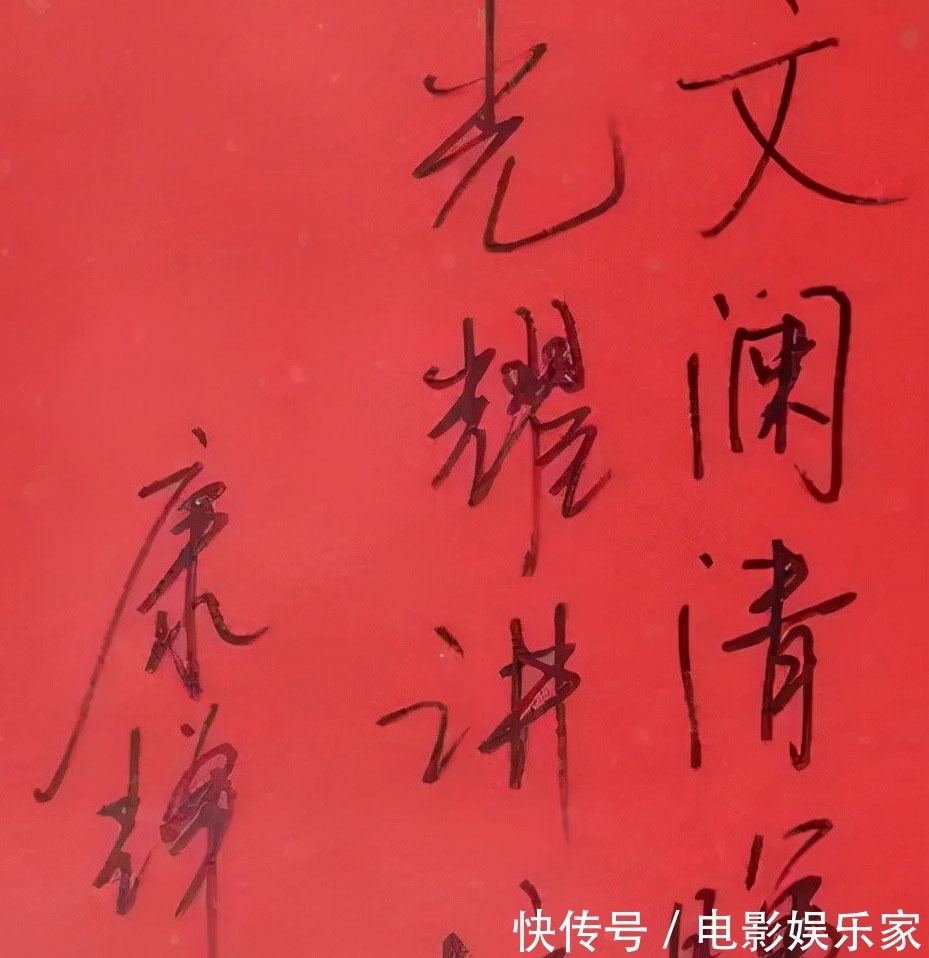 文澜清
光耀讲
康辉
快传号 / 电影娱乐家